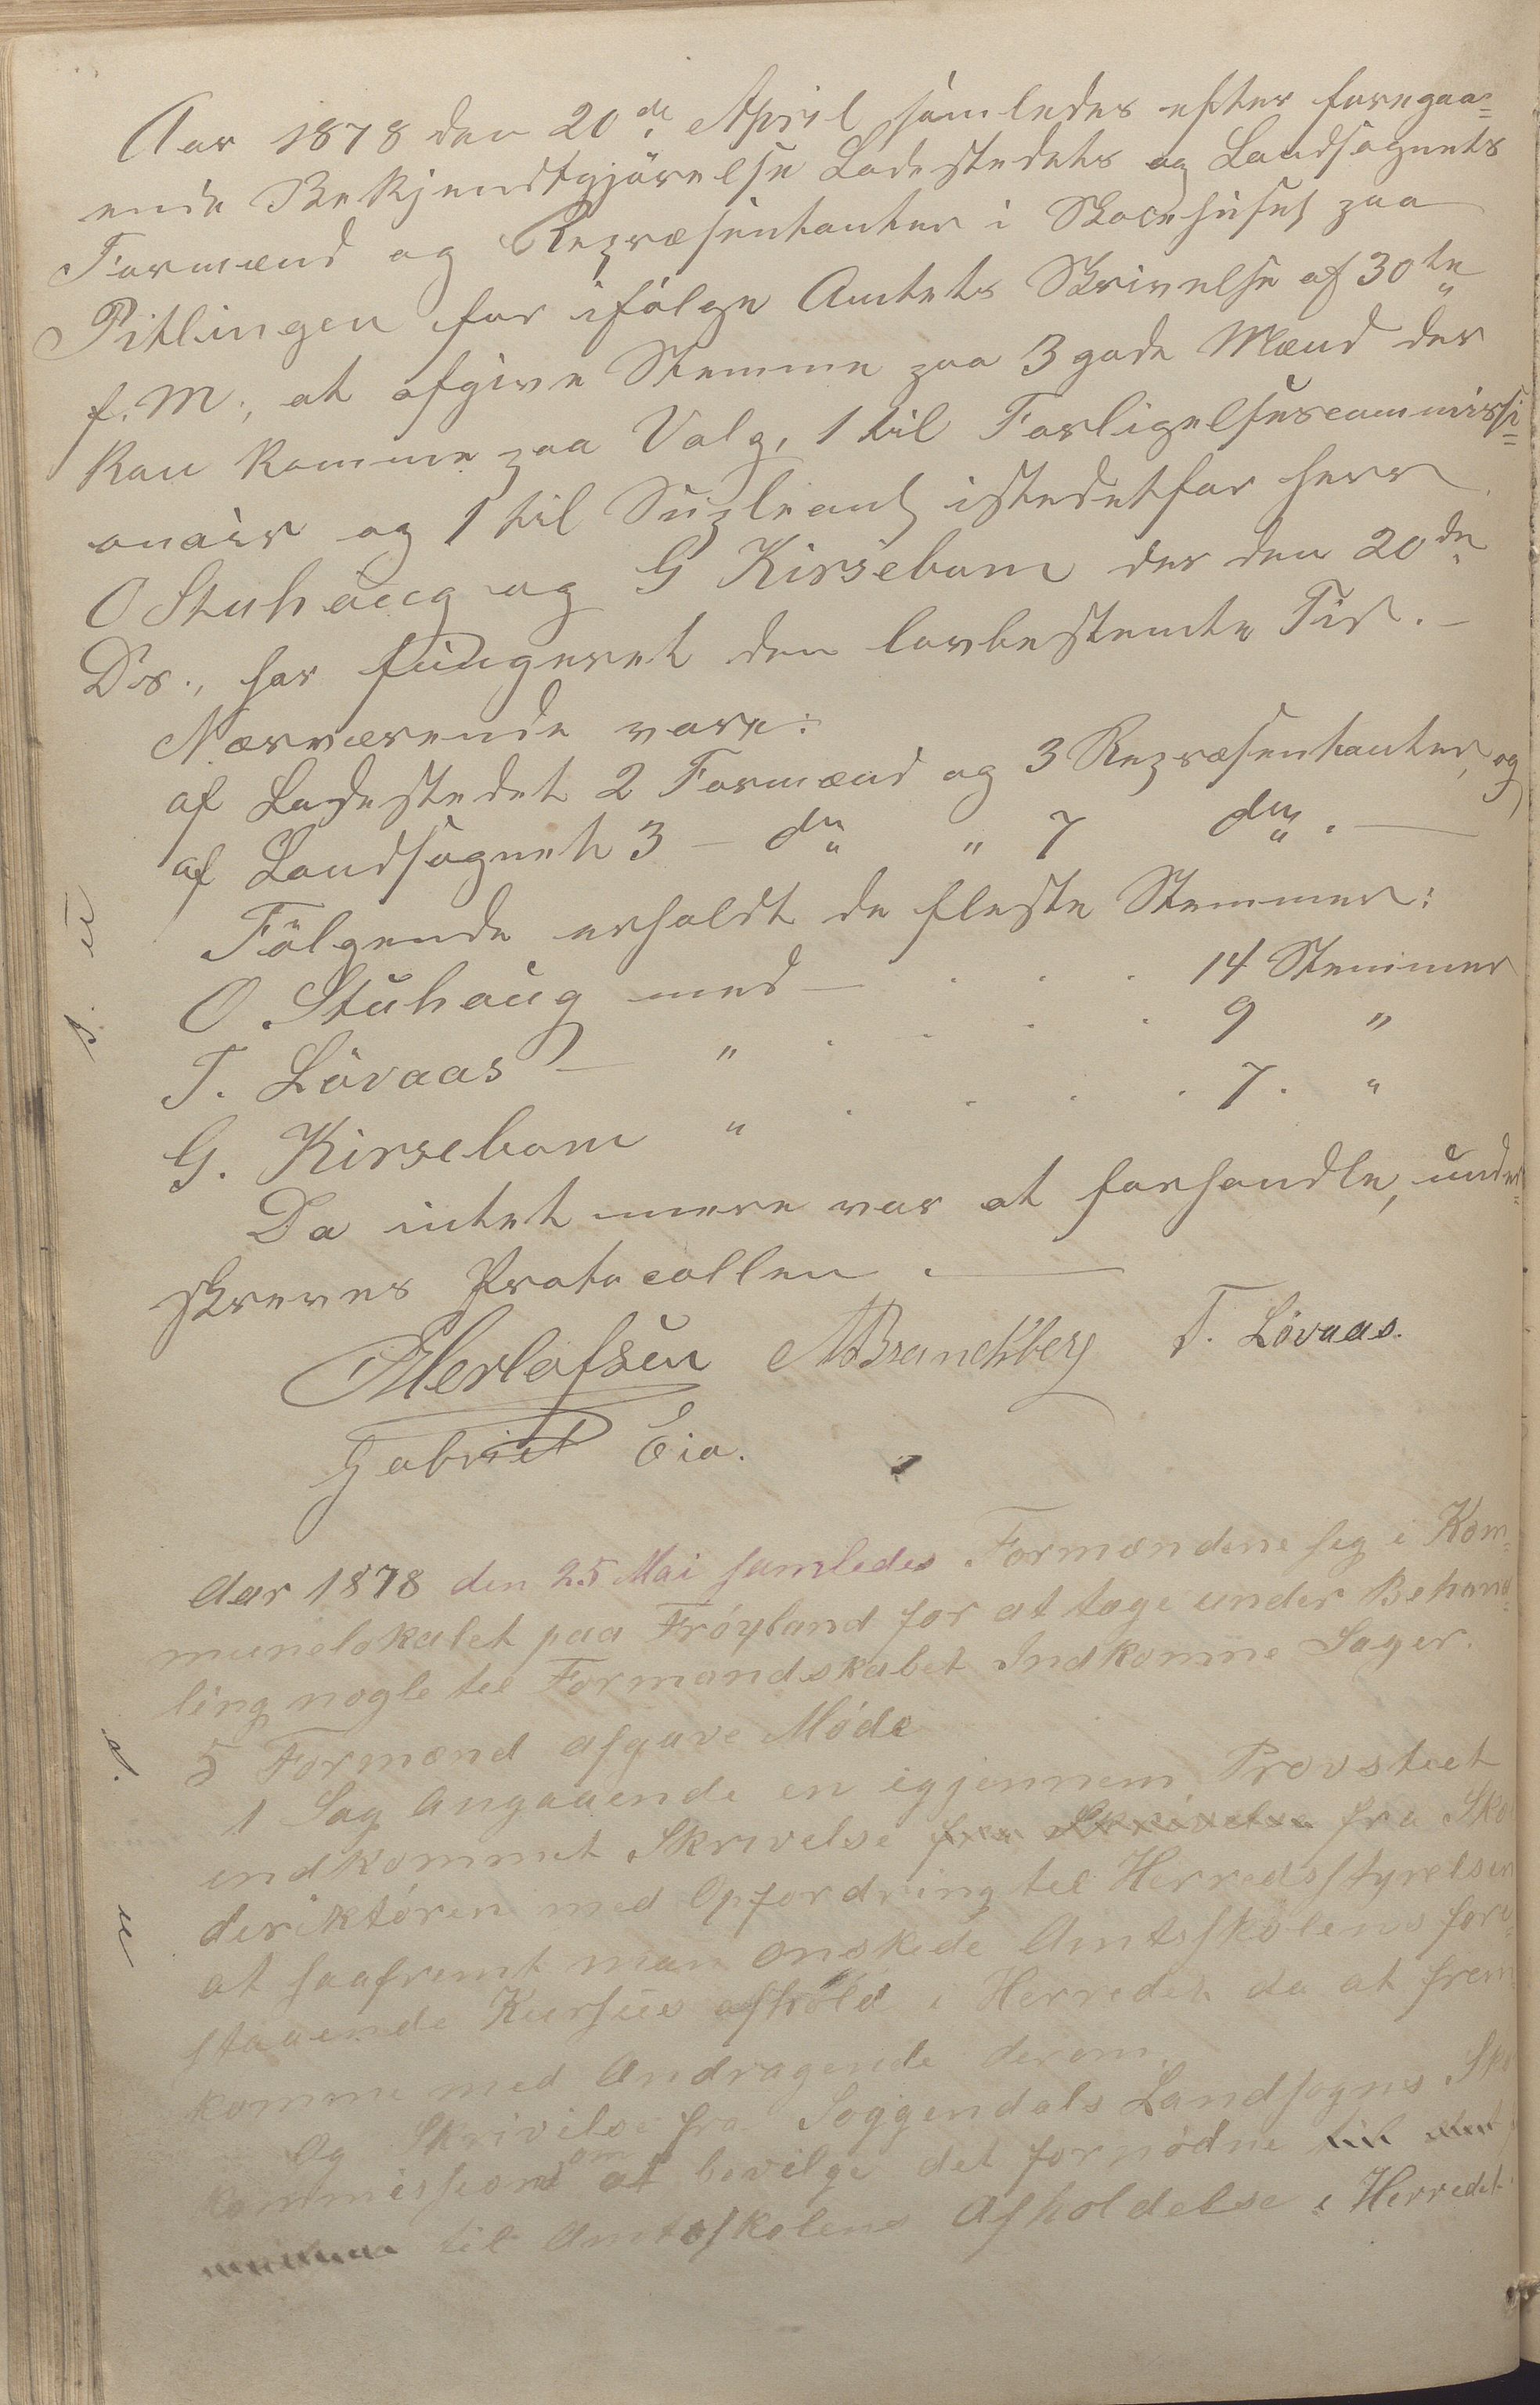 Aar 1878 den 20de April samledes efter foregaa=
ende Bekjendtgjörelse Ladestedets og Landsognets
Formænd og Repræsentanter i Skolehuset paa
Pitlingen for ifölge Amtets Skrivelse af 30te
f. M., at afgive Stemme paa 3 gode Mænd der
kan komme paa Valg, 1 til Forligelsescommissi=
onair og 1 til Supleant istedetfor Herr
O Stuhaug og G Kirsebom der den 20de
Ds., har fungeret den lovbestemte Tid. –
Nærværende vare:
af Ladestedet 2 Formænd og 3 Repræsentanter, og
af Landsognet 3 – do " 7 do. —
Fölgende erholdt de fleste Stemmer:
O. Stuhaug med – . . . 14 Stemmer
T. Lövaas – " . . . . 9 "
G. Kirsebom " . . . . 7. "
Da intet mere var at forhandle, under=
skreves Protocollen. —
Herlofsen MBrandtberg T. Lövaas.
Gabriel Eia.
Aar 1878 den 25 Mai samledes Formændene sig i Kom=
munelokalet paa Fröyland for at tage under Behand=
ling nogle til Formandskabet Indkomne Sager.
5 Formænd afgave Möde
1 Sag Angaaende en igjennem Provstiet
indkommet Skrivelse fra Skrivelse fra Sko
deriktören med Opfordring til Herredsstyrelsen
at saafremt man onskede Amtsskolens fore=
staaende Kursus afhold i Herredet da at frem
komme med Andragende derom.
Og Skrivelse fra Soggendals Landsogns Sko
kommission om at bevilge det fornödne til det
til Amtsskolens Afholdelse i Herredet
s. u
s.
u